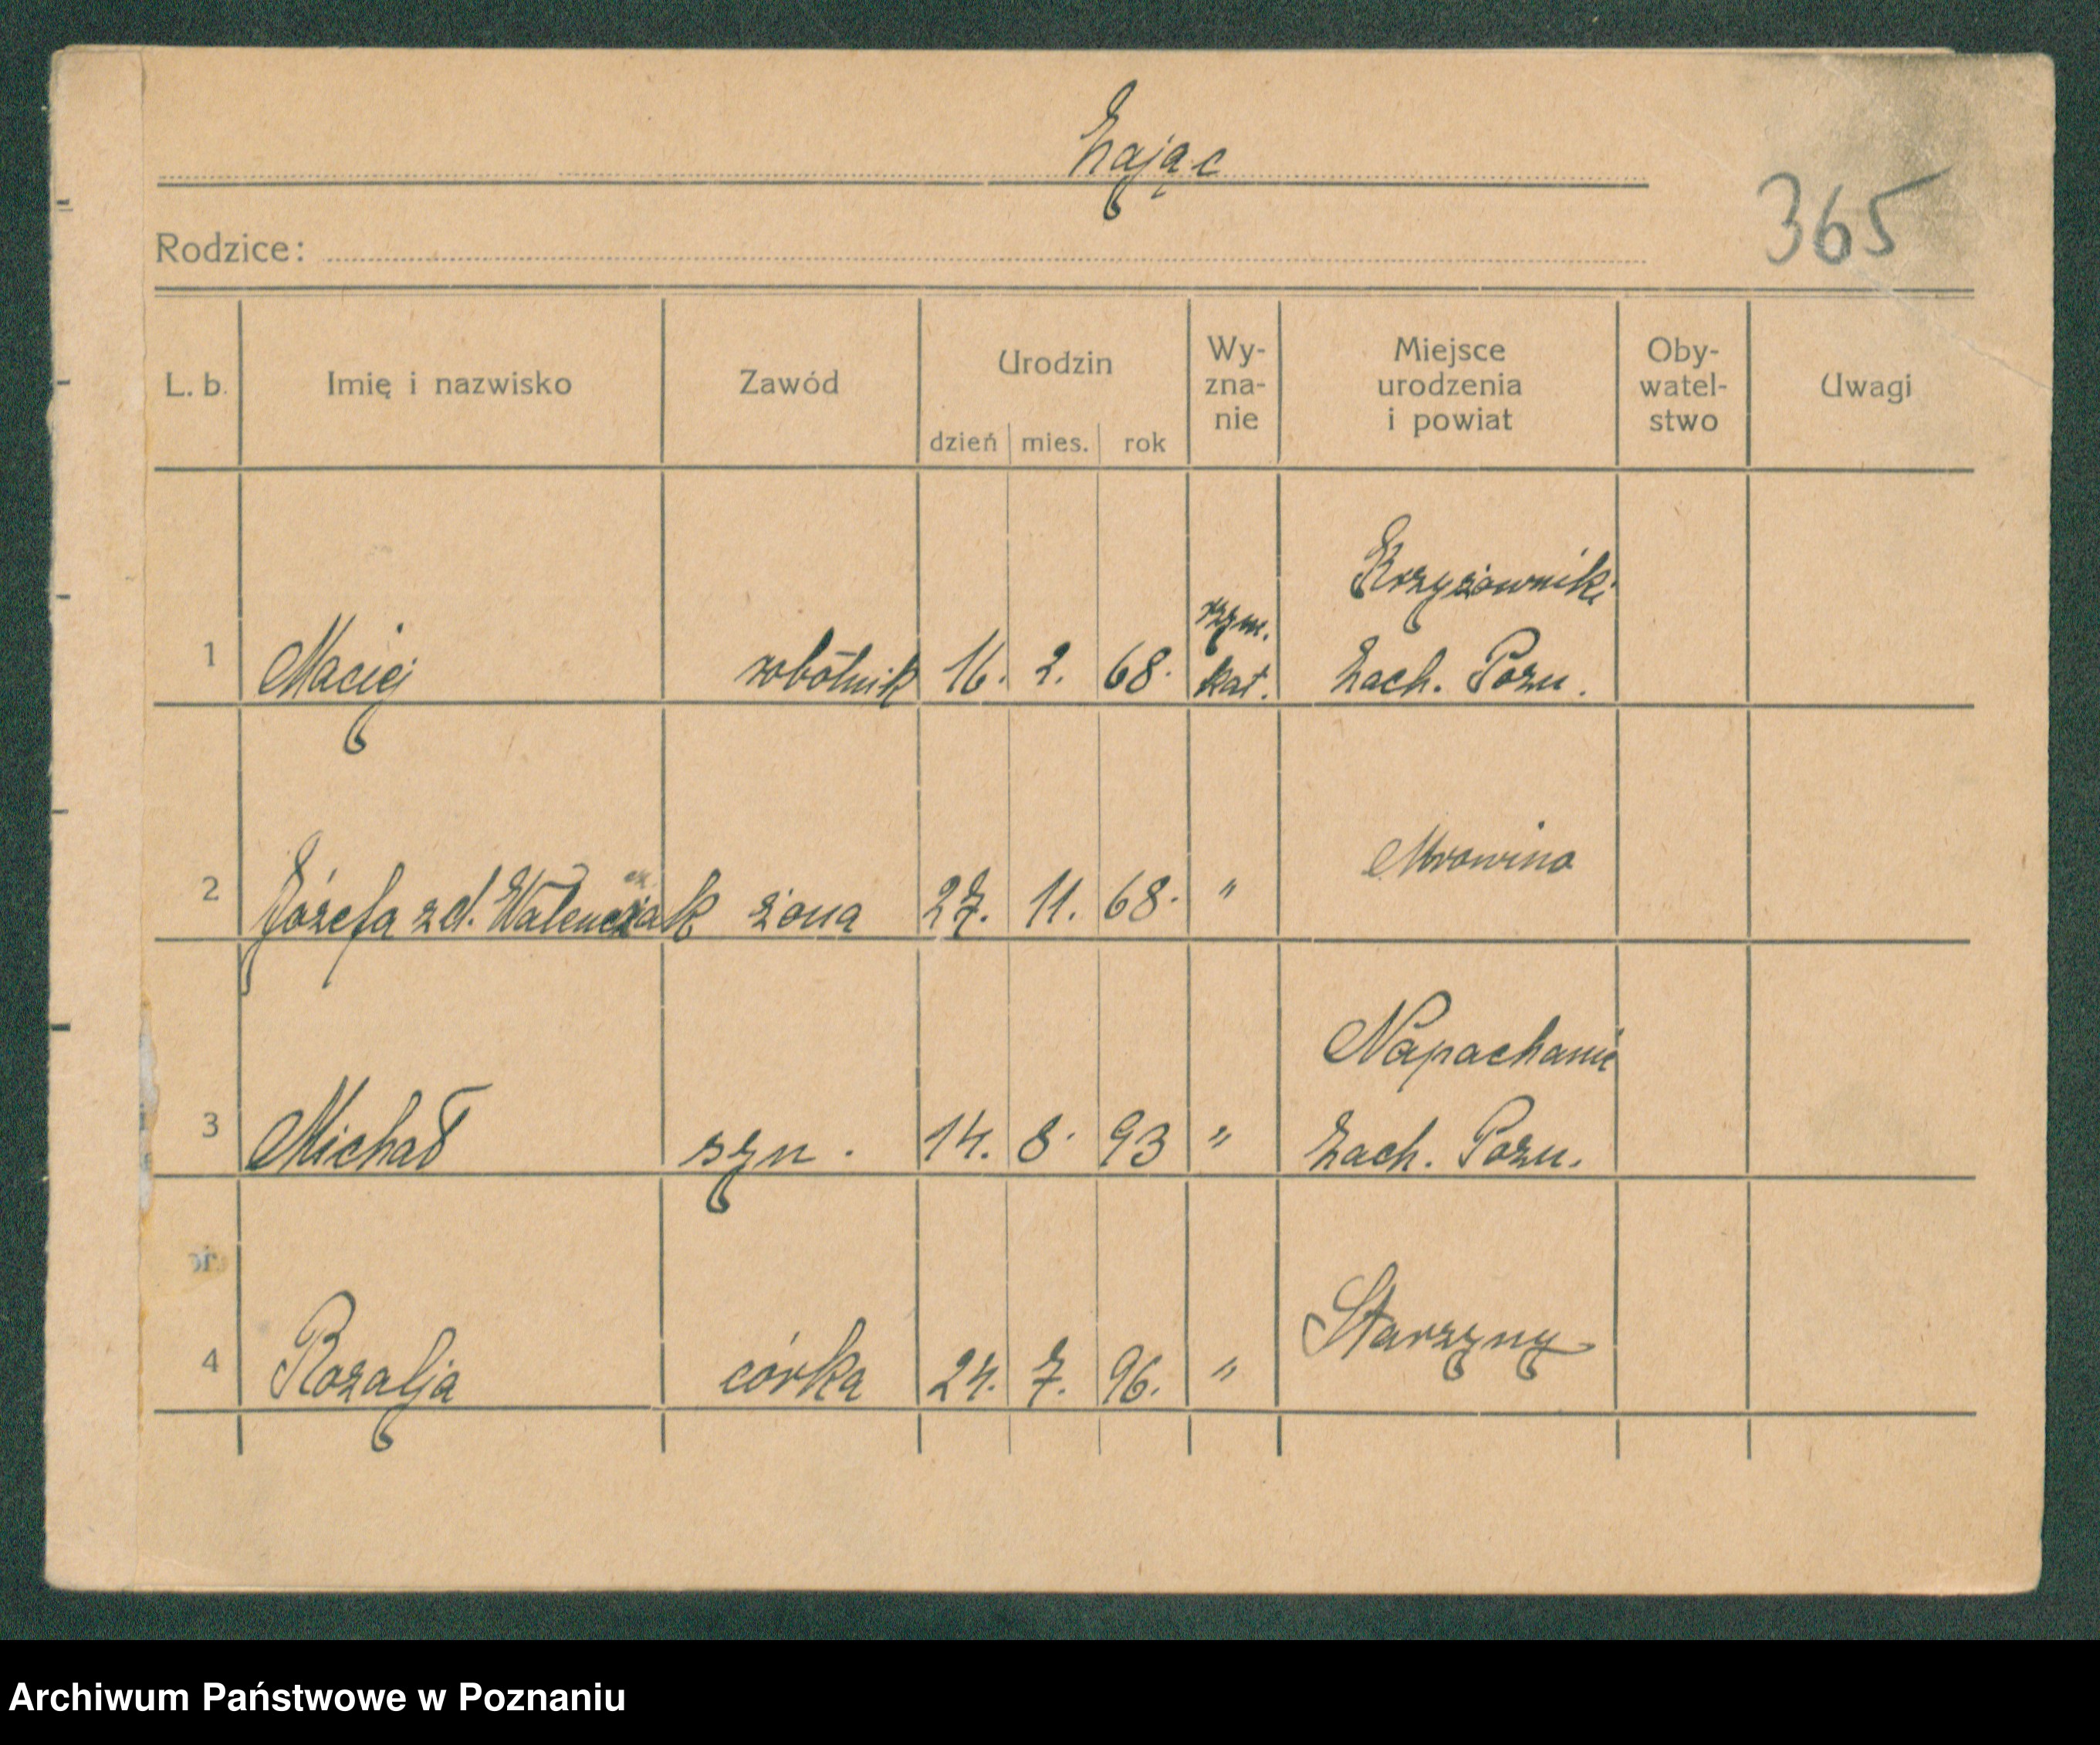 Zając
365
Rodzice:
L. b. Imię i nazwisko Zawód Urodzin dzień mies. rok Wy-zna-nie Miejsce urodzenia i powiat Oby-watel-stwo Uwagi
Krzyżowniki
rzym.
1 Maciej robotnik 16. 2. 68. kat. Zach. Pozn.
Mrowino
2 Józefa zd. Walenczak żona 27. 11. 68. "
Napachanie
3 Michał syn. 14. 8. 93 " Zach. Pozn.
Starzyny
4 Rozalja córka 24. 7. 96. "
Archiwum Państwowe w Poznaniu